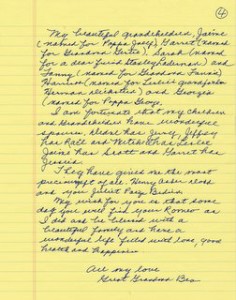 4
My beautiful grandchildren, Jaime
(named for Poppa Josef) Garret (named
for Grandma Gertie), Sarah (named
for a dear friend Stanley            ) and
Fanny (named for Grandma Fannie)
Harrison (named for Leslie's grandfather
Herman              ) and Georgia
(named for Poppa George.
I am fortunate that my children
and Grandchildren have wonderful
spouses,            has Jerry, Jeffrey
has            and            has Leslie
Jaime has Scott and Garret has
Jessica.
They have given me the most
precious gift of all. Henry            
and you Juliet Paige
My wish for you is that some
day you will find your Romeo as
I did and be blessed with a
beautiful family and have a
wonderful life filled with love, good
health and happiness
All my love
Great Grandma Bea